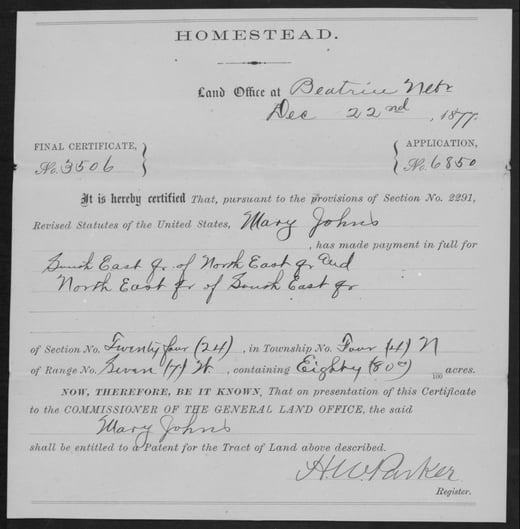 HOMESTEAD.
Land Office at Beatrice Nebr
Dec 22nd, 1877.
FINAL CERTIFICATE, No. 3506
APPLICATION, No. 6850
It is hereby certified That, pursuant to the provisions of Section No. 2291,
Revised Statutes of the United States, Mary Johns
, has made payment in full for
South East qr of North East qr and
North East qr of South East qr
of Section No. Twenty four (24), in Township No. Four (4) N
of Range No. Seven (7) W, containing Eighty (80) 100 acres.
NOW, THEREFORE, BE IT KNOWN, That on presentation of this Certificate
to the COMMISSIONER OF THE GENERAL LAND OFFICE, the said
Mary Johns
shall be entitled to a Patent for the Tract of Land above described.
H.W. Parker
Register.